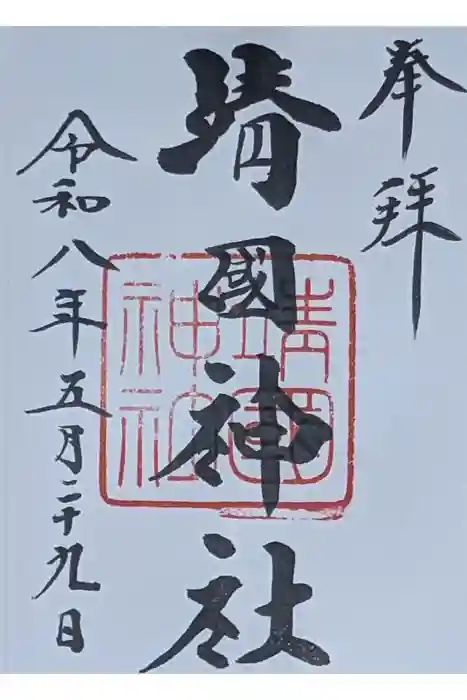 奉拝
靖國神社
靖國
神社
令和八年五月二十九日